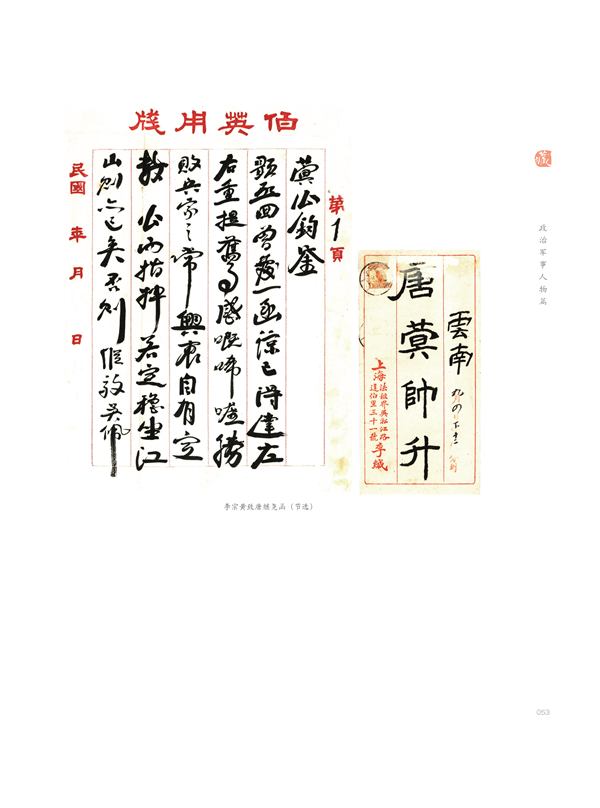 伯英用牋
第1頁
蓂公鈞鑒
曾發一函諒已得達左
右重提舊事感慨唏噓勝
敗兵家之常興衰自有定
數公而指揮若定穩坐江
山則已矣否則吳佩
民國 年 月 日
雲南
唐蓂帥升
上海法租界吳淞江路
伯里三十一號
李緘
政治军事人物篇
李宗黄致唐继尧函（节选）
053